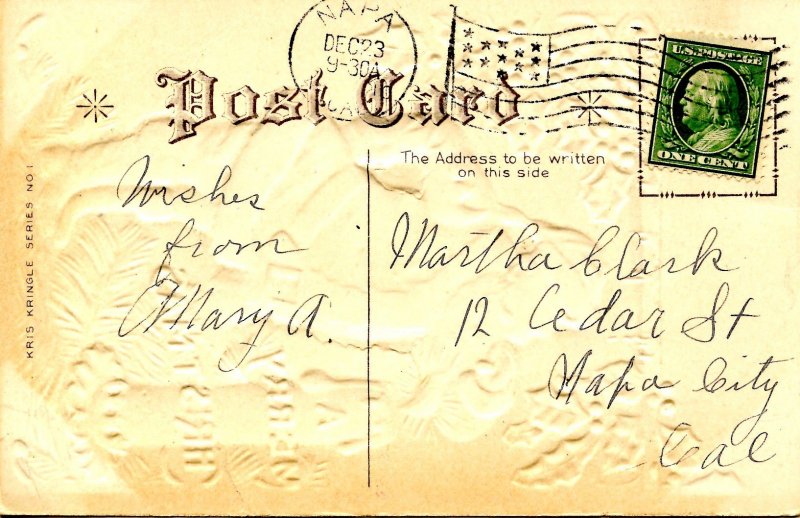 NAPA
DEC 23
9-30A
CAL
Post Card
U.S. POSTAGE
ONE CENT
The Address to be written
on this side
KRIS KRINGLE SERIES NO. 1
Wishes
from
Mary A.
Martha Clark
12 Cedar St
Napa City
Cal